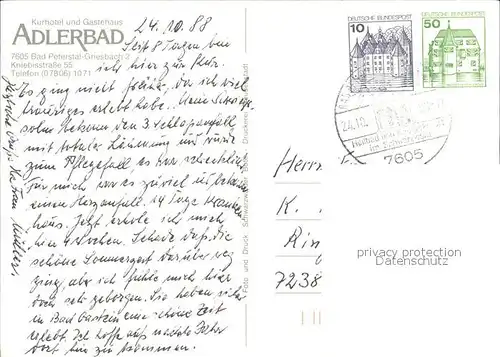 Kurhotel und Gästehaus
ADLERBAD
7605 Bad Peterstal-Griesbach 2
Kniebisstraße 55
Telefon (07806) 1071
24.10.88
Seit 8 Tagen bin
ich hier zur Kur.
Es ging nicht früher, da ich viel
trauriges erlebt habe. Meine Schwieger-
den 3. Schlaganfall
mit totaler Lähmung und wurde
zum Pflegefall, es war schrecklich.
Für mich war es zuviel u.
einen Herzanfall. 14 Tage Kranken-
haus. Jetzt erhole ich mich
hier 4 Wochen. Schade, daß die
schöne Sommerzeit darüber weg
ging, aber ich fühle mich hier
doch sehr geborgen. Sie haben sicher
in Bad Gastein eine schöne Zeit
erlebt. Ich hoffe auf nächstes Jahr
dort hin zu kommen.
Herzliche Grüße Ihre Frau
Foto und Druck Schwarzwälder Bote Druckerei
DEUTSCHE BUNDESPOST
10
DEUTSCHE BUNDESPOST
50
24.10.
im Schwarzwald
7605
Herrn
K.
Rin
7238
privacy protection
Datenschutz